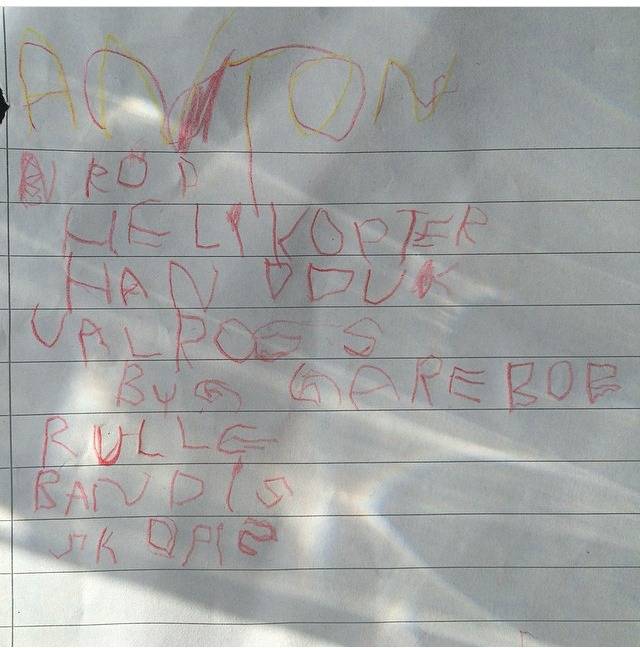 ANTON
RÖD
HELIKOPTER
HAN DDUK
VALROSS
BYG GAREBOB
RULLE
BANDIS